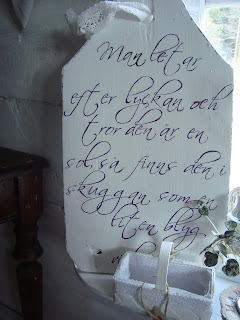 Man letar
efter lyckan och
tror den är en
sol, så finns den i
skuggan som en
liten blyg